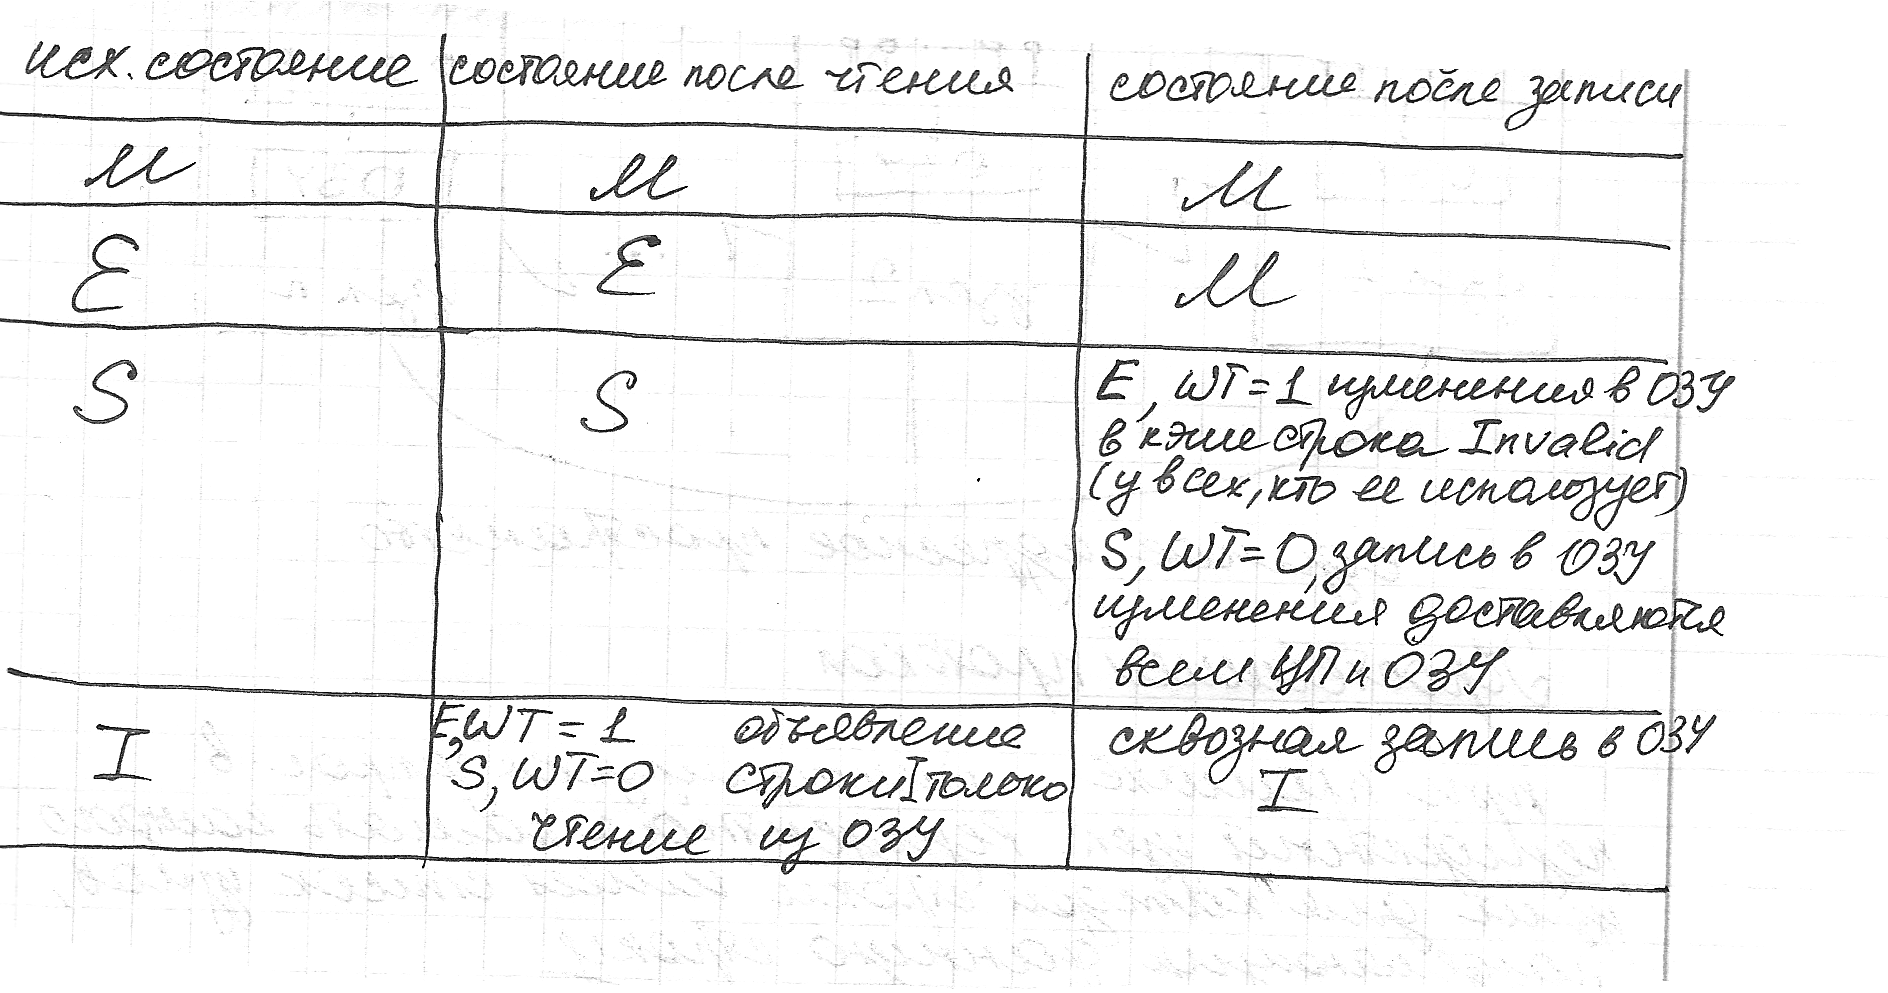 исх. состояние состояние после чтения состояние после записи
M M M
E E M
S S E, WT=1 изменения в ОЗУ
в кэше строка Invalid
(у всех, кто ее использует)
S, WT=0, запись в ОЗУ
изменения доставляются
всем ЦП и ОЗУ
I E, WT=1 объявление сквозная запись в ОЗУ
S, WT=0 строки I только I
чтение из ОЗУ